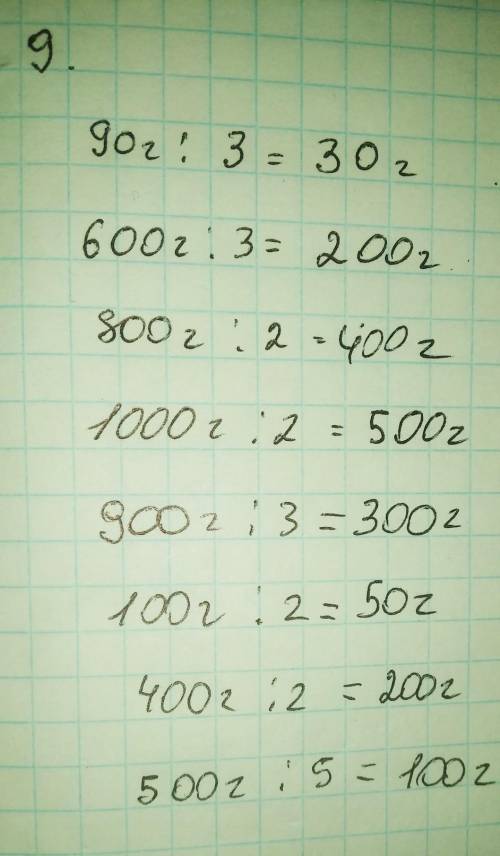 9.
90г : 3 = 30г
600г : 3 = 200г
800г : 2 = 400г
1000г : 2 = 500г
900г : 3 = 300г
100г : 2 = 50г
400г : 2 = 200г
500г : 5 = 100г